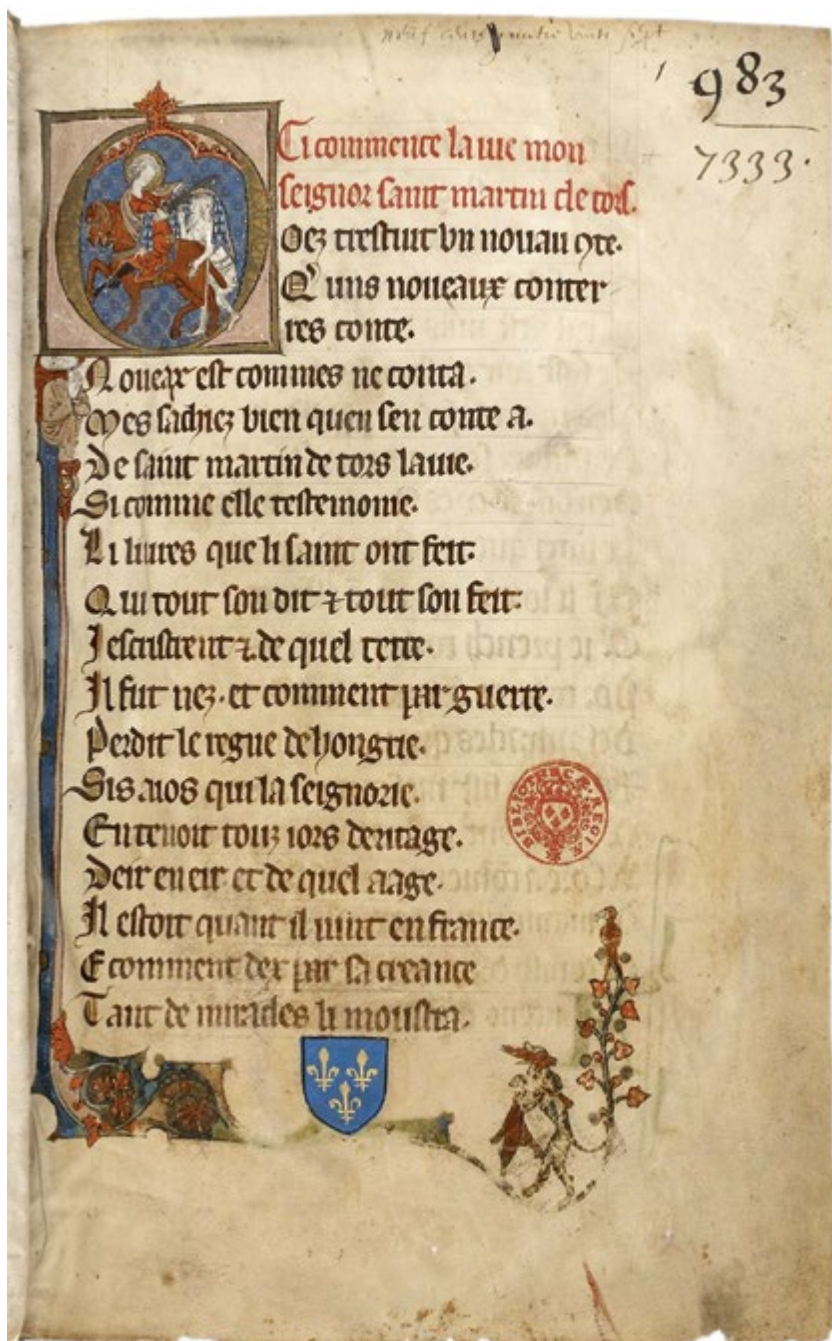 983
7333.
Ci commence la uie mon
seignor saint martin de tors.
Oez trestuit vn nouau 9te.
Q' uns noueaux conter
res conte.
Noueax est commes ne conta.
Mes sachiez bien quen sen conte a.
De saint martin de tors la uie.
Si comme elle testemonie.
Li liures que li saint ont feit.
Qui tout son dit ⁊ tout son feit.
I escristrent ⁊ de quel terre.
Il fut nez. et comment par guerre.
Perdit le regne de hongrie.
Sis aios qui la seignorie.
En tenoit touz iors deritage.
Deir en eir et de quel aage.
Il estoit quant il uint en france.
E comment dex par sa creance
Tant de miracles li moustra.
BIBLIOTHECÆ REGIÆ